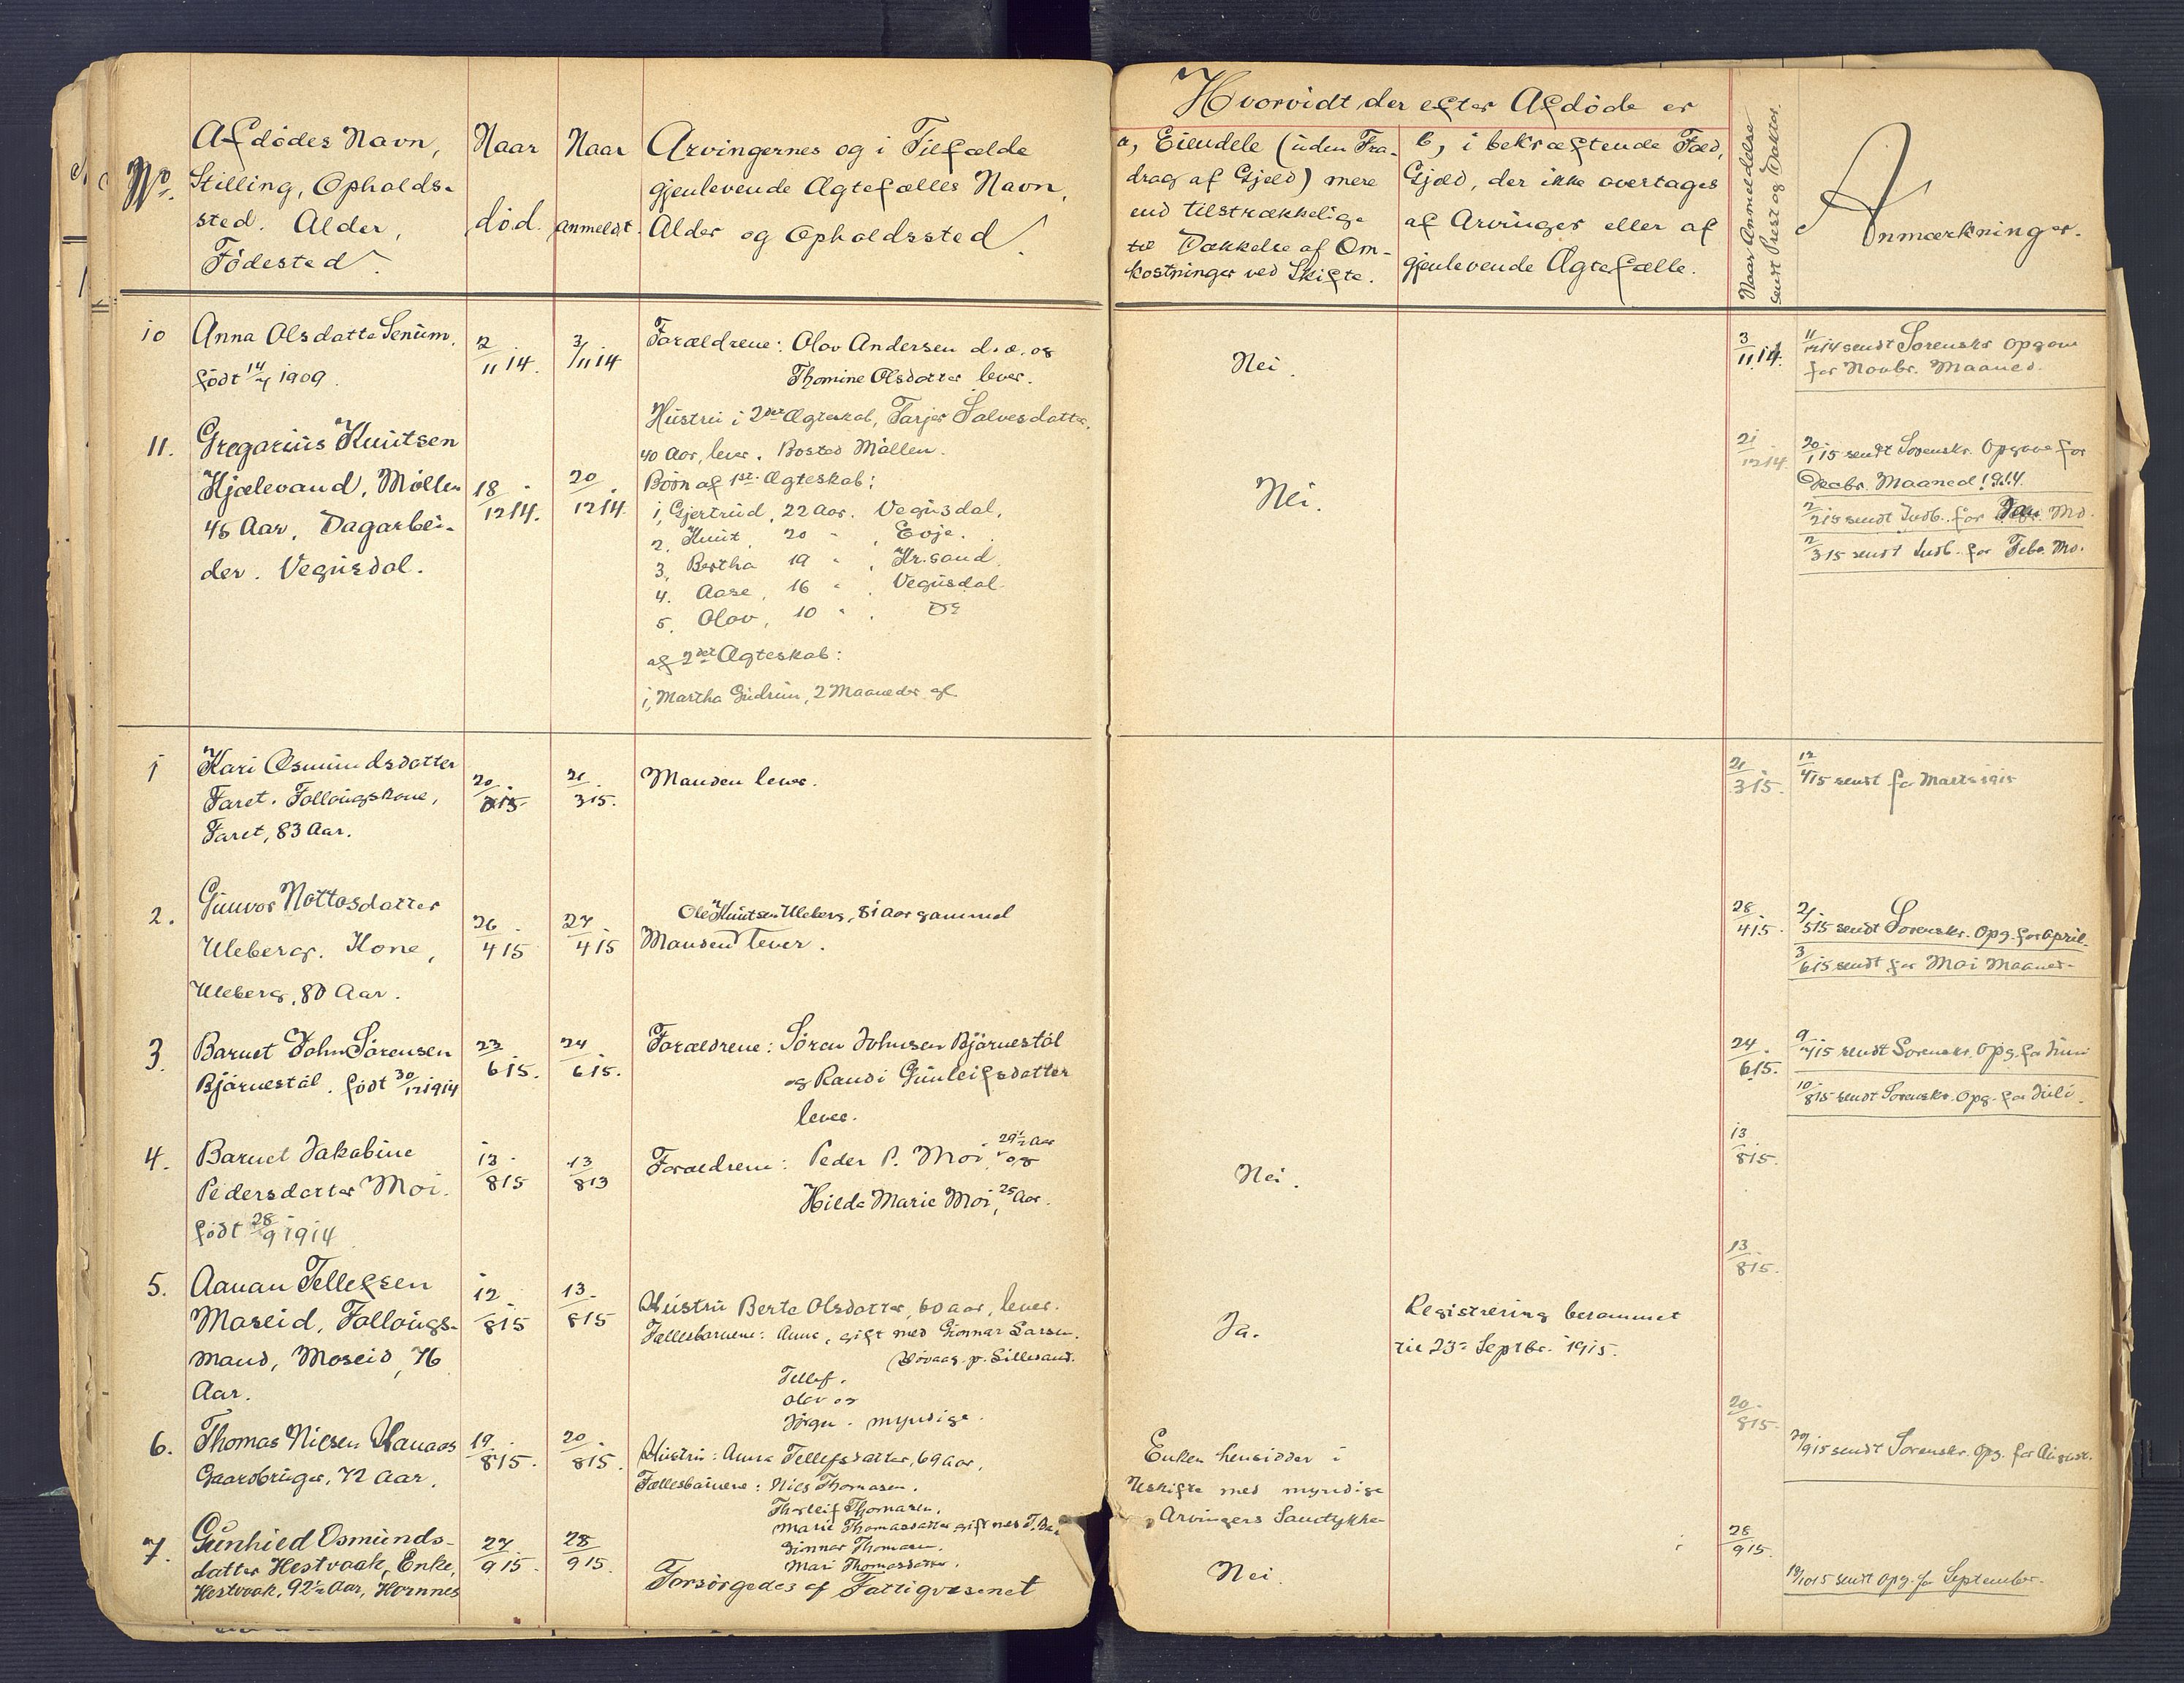 No.
Afdödes Navn,
Stilling, Opholds-
sted. Alder,
Födested.
Naar
död.
Naar
anmeldt.
Arvingernes og i Tilfælde
gjenlevende Ægtefælles Navn,
Alder og Opholdssted.
10
Anna Olsdatte Senum,
födt 14/7 1909.
2/11 14.
3/11 14
Forældrene: Olav Andersen d. æ. og
Thomine Olsdatter lever.
11.
Gregarius Knutsen
Hjælevand, Möllen
45 Aar, Dagarbei-
der. Vegusdal.
18/12 14.
20/12 14.
Hustru i 2det Ægteskab, Tarjer Salvesdatter,
40 Aar, lever. Bosted Möllen.
Börn af 1st. Ægteskab:
1, Gjertrud, 22 Aar. Vegusdal,
2. Knut, 20 " , Evje.
3, Bertha 19 " , Kr.sand,
4. Aase, 16 " , Vegusdal
5. Olav, 10 " . Do
af 2det Ægteskab:
1, Martha Gudrun, 2 Maaneder gl.
1
Kari Osmundsdatter
Faret. Follougskone,
Faret, 83 Aar.
20/3 15.
21/3 15.
Manden lever.
2.
Gunvor Nottosdatter
Uleberg. Kone,
Uleberg, 80 Aar.
26/4 15
27/4 15
Ole Knutsen Uleberg, 81 Aar gammel
Manden lever.
3.
Barnet John Sörensen
Bjärnestöl. födt 30/12 1914
23/6 15.
24/6 15.
Forældrene: Sören Johnsen Bjårnestöl
og Randi Gunleifsdatter
lever.
4.
Barnet Jakabine
Pedersdatter Moi.
födt 28/9 1914
13/8 15
13/8 13
Forældrene: Peder P. Moi, 29½ Aar
og
Hilda Marie Moi, 25 Aar.
5.
Aanan Tellefsen
Moseid, Follougs-
mand, Moseid, 76
Aar.
12/8 15
13/8 15
Hustru Berte Olsdatter, 60 aar, lever.
Fællesbarnene: Anne, gift med Gunnar Larsen.
Hövaag p. Lillesand.
Tellef.
Olav og
Jörgen. myndige.
6.
Thomas Nilsen Hanaas
Gaardbruger, 72 Aar.
19/8 15.
20/8 15.
Hustru: Anne Tellefsdatter, 69 Aar,
Fællesbarnene: Nils Thomasen.
Thorleif Thomasen.
Marie Thomasdatter gift med T.
Gunnar Thomasen.
Mari Thomasdatter.
7.
Gunhild Osmunds-
datter Hestvaak, Enke,
Hestvaak, 92½ Aar, Hornnes
27/9 15.
28/9 15.
Forsörgedes af Fattigvæsenet
Hvorvidt der efter Afdöde er
a, Eiendele (uden Fra-
drag af Gjæld) mere
end tilstrækkelige
til Dækkelse af Om-
kostninger ved Skifte.
b, i bekræftende Fald,
Gjæld, der ikke overtages
af Arvinger eller af
gjenlevende Ægtefælle.
Naar Anmeldelse
sendt Prest og Doktor.
Anmærkninger.
Nei.
3/11 14.
11/12 14 sendt Sorenskr Opgave
for Novbr. Maaned.
Nei.
21/12 14.
20/1 15 sendt Sorenskr. Opgave for
Decbr. Maaned 1914.
2/2 15 sendt Indb. for Jan Md.
2/3 15 sendt Indb. for Febr. Md.
21/3 15.
12/4 15 sendt for Marts 1915
28/4 15.
2/5 15 sendt Sorenskr. Opg. for April.
3/6 15 sendt for Mai Maaned.
24/6 15.
9/7 15 sendt Sorenskr. Opg. for Juni
10/8 15 sendt Sorenskr. Opg. for Juli.
Nei.
13/8 15.
13/8 15.
Ja.
Registrering berammet
til 23de Septbr. 1915.
20/8 15.
Enken hensidder i
Uskifte med myndige
Arvingers Samtykke
20/9 15 sendt Sorenskr. Opg. for August.
Nei.
28/9 15.
19/10 15 sendt Opg. for September.